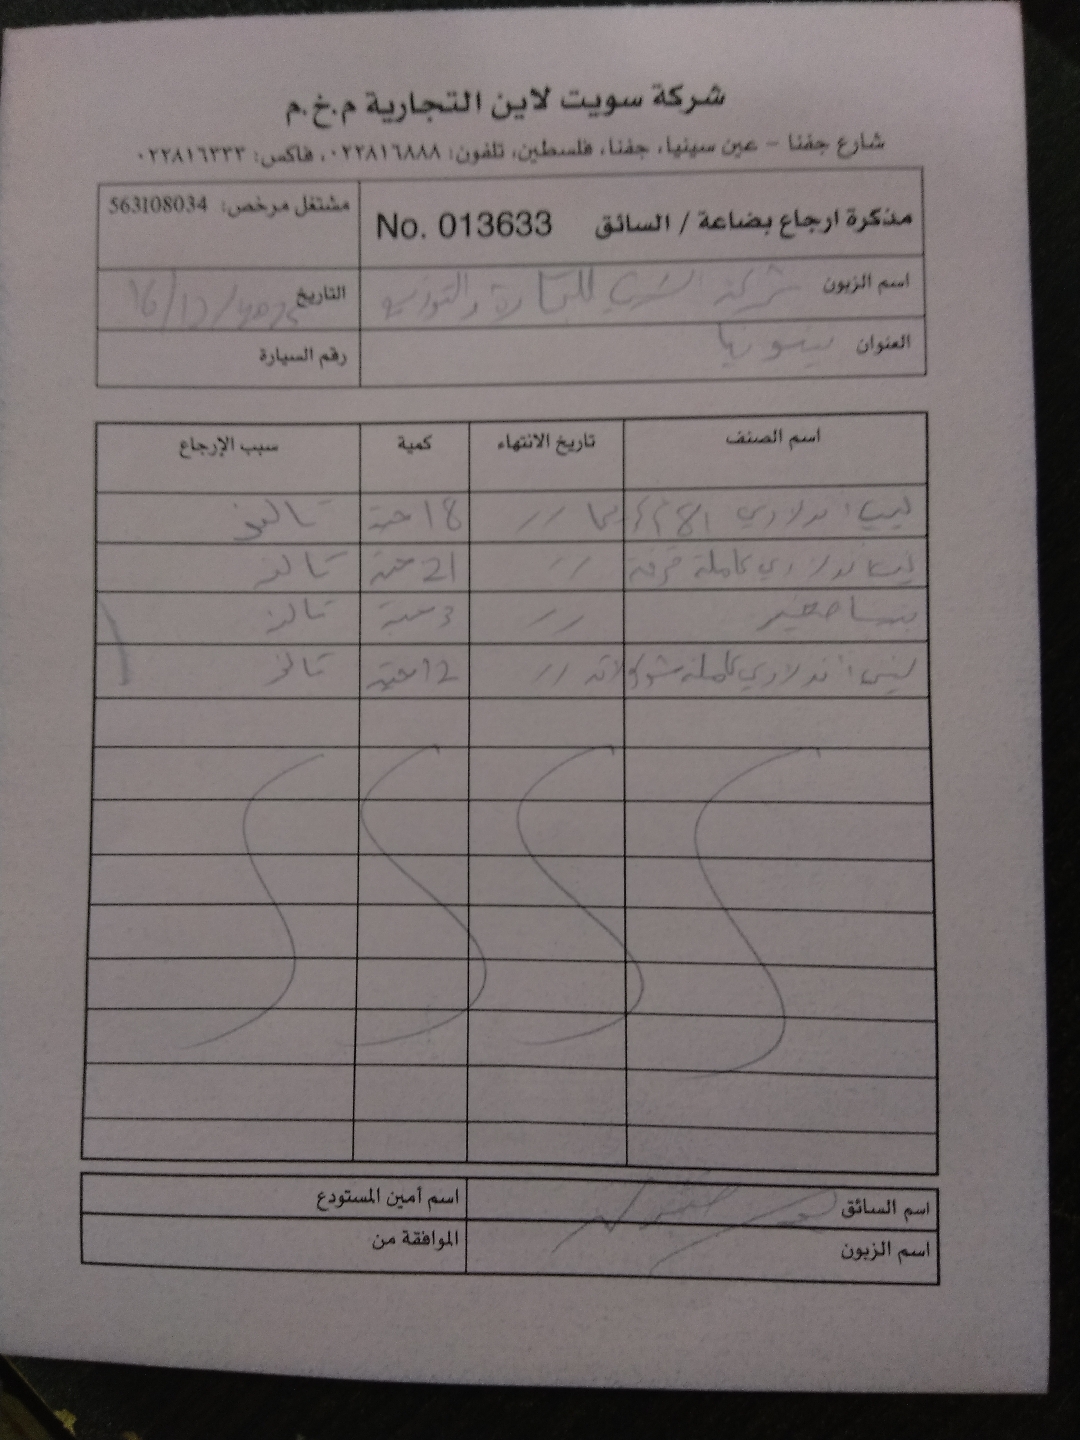 شركة سويت لاين التجارية م.خ.م
شارع جفنا - عين سينيا، جفنا، فلسطين، تلفون: ٠٢٢٨١٦٨٨٨، فاكس: ٠٢٢٨١٦٣٣٣
مذكرة ارجاع بضاعة / السائق No. 013633 مشتغل مرخص: 563108034
اسم الزبون شركة للتجارة والتوزيع التاريخ 16/12/
العنوان بيتونيا رقم السيارة
اسم الصنف تاريخ الانتهاء كمية سبب الإرجاع
18 حبة تالف
كاملة قرفة 21 حبة تالف
صغير 3 حبة تالف
كاملة شوكولاته 12 حبة تالف
اسم السائق اسم أمين المستودع
اسم الزبون الموافقة من